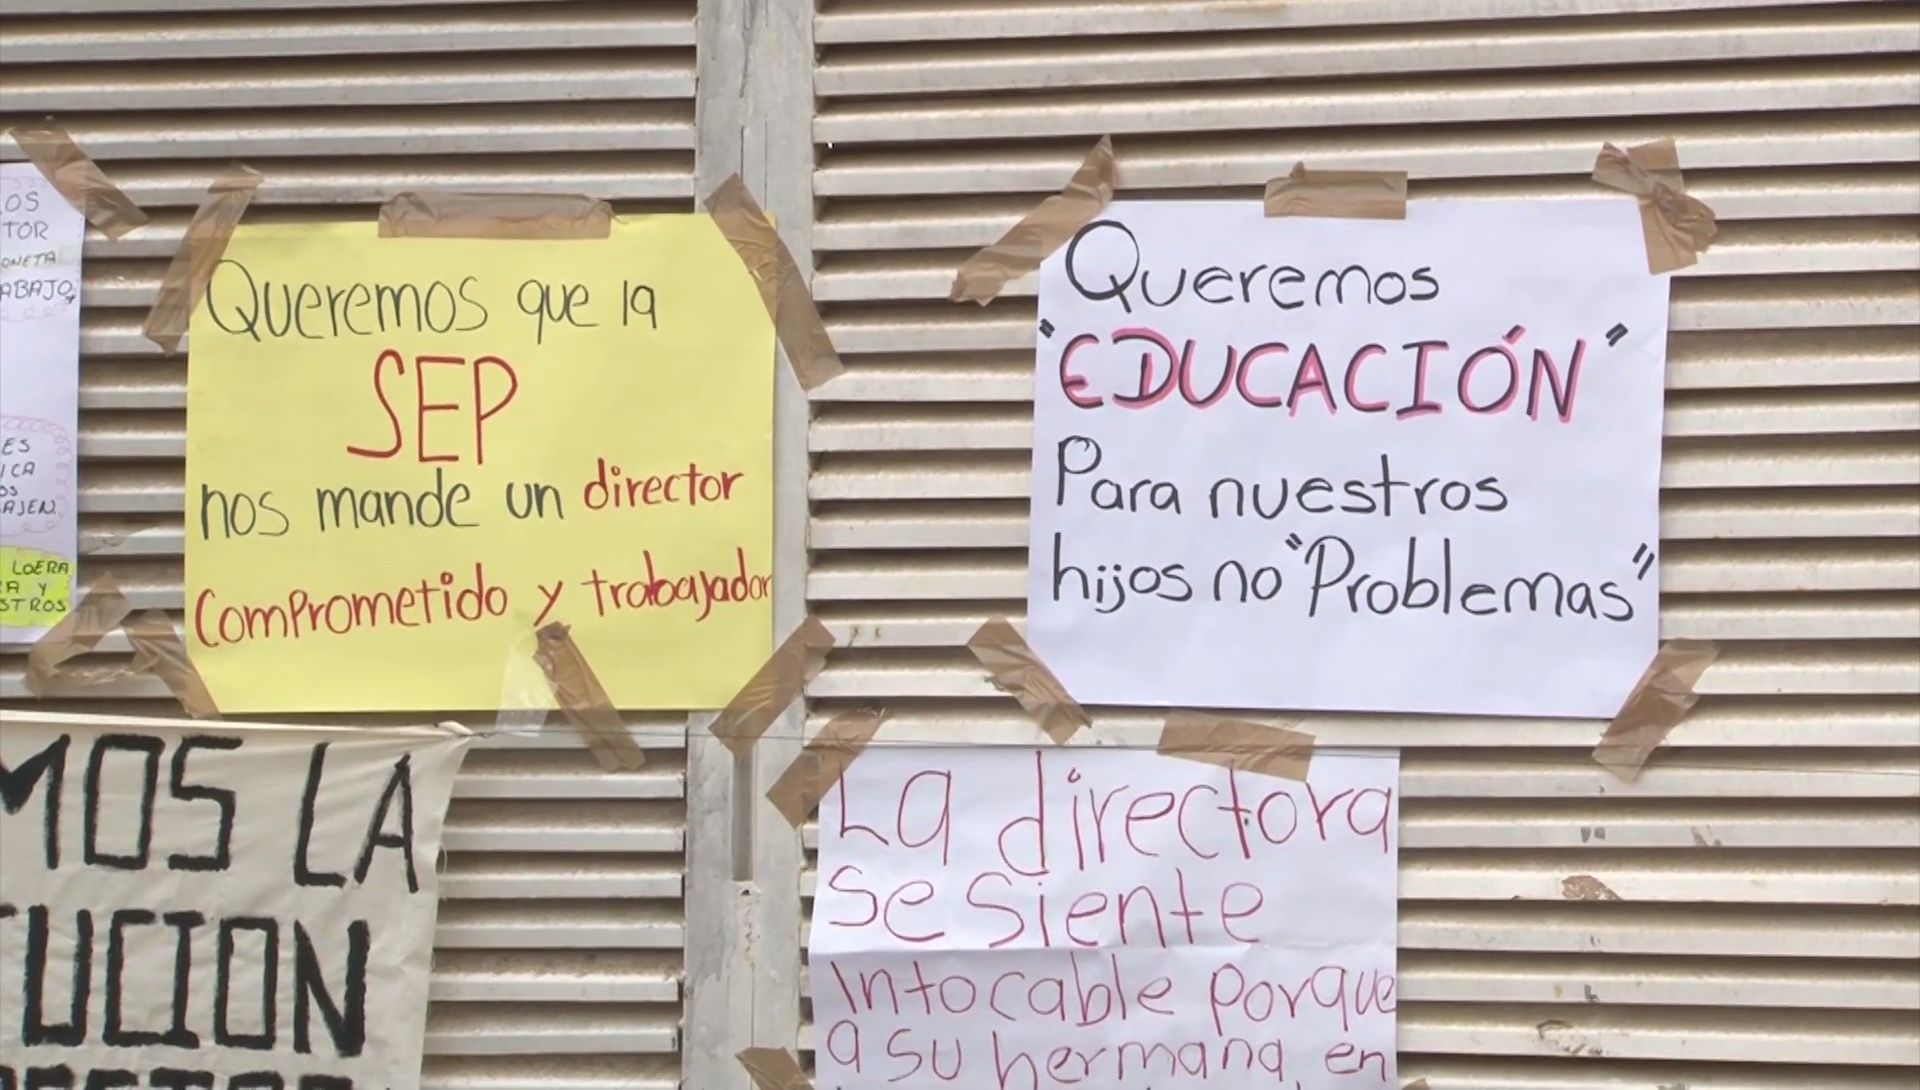 OS
TOR
ABAJO,
ES
ICA
OS
AJEN
LOERA
RA Y
STROS
Queremos que la
SEP
nos mande un director
Comprometido y trabajador
Queremos
"EDUCACIÓN"
Para nuestros
hijos no "Problemas"
MOS LA
UCION
La directora
se siente
Intocable porque
a su hermana, en